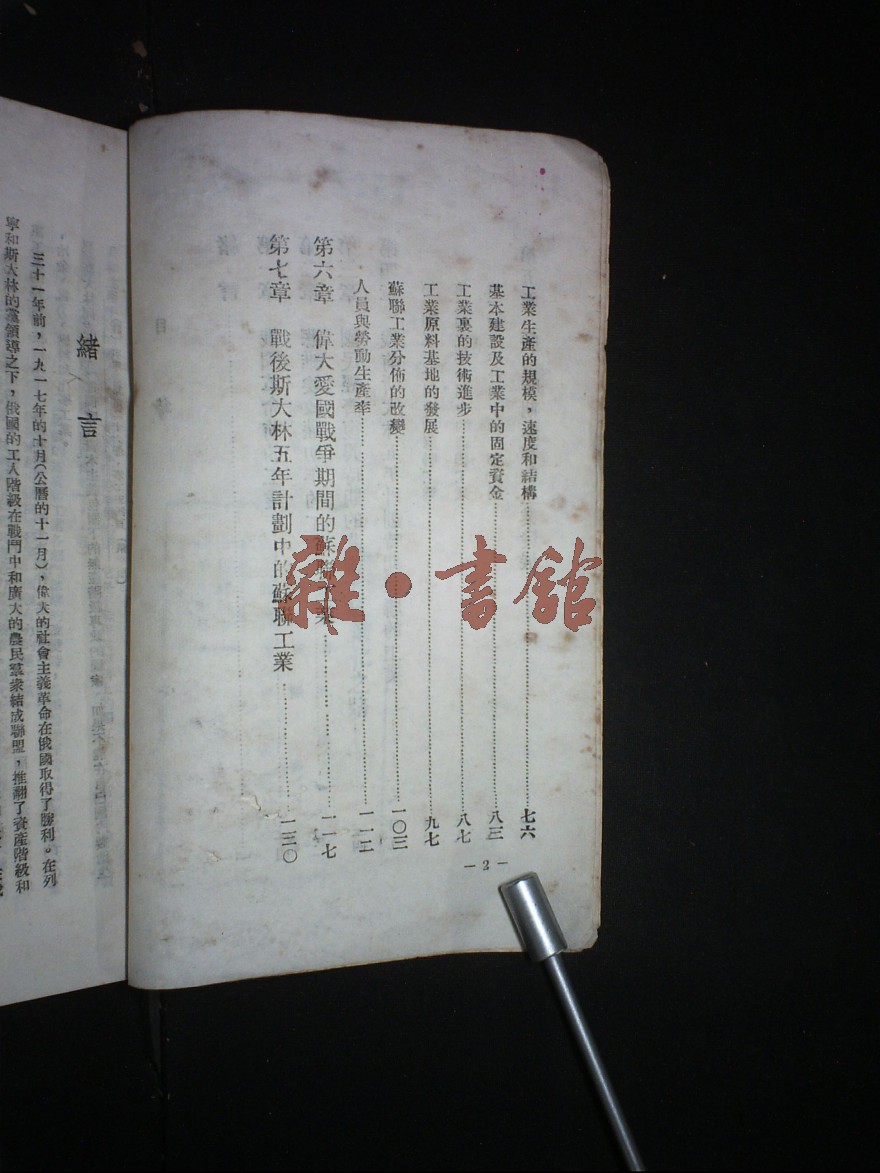 工業生產的規模，速度和結構……七六
基本建設及工業中的固定資金……八三
工業裏的技術進步……八七
工業原料基地的發展……九七
蘇聯工業分佈的改變……一〇三
人員與勞動生產率……一一二
第六章　偉大愛國戰爭期間的蘇聯工業……一一七
第七章　戰後斯大林五年計劃中的蘇聯工業……一三〇
— 2 —
雜·書館
緒言
三十一年前，一九一七年的十月（公曆的十一月），偉大的社會主義革命在俄國取得了勝利。在列
寧和斯大林的黨領導之下，俄國的工人階級在戰鬥中和廣大的農民羣衆結成聯盟，推翻了資產階級和